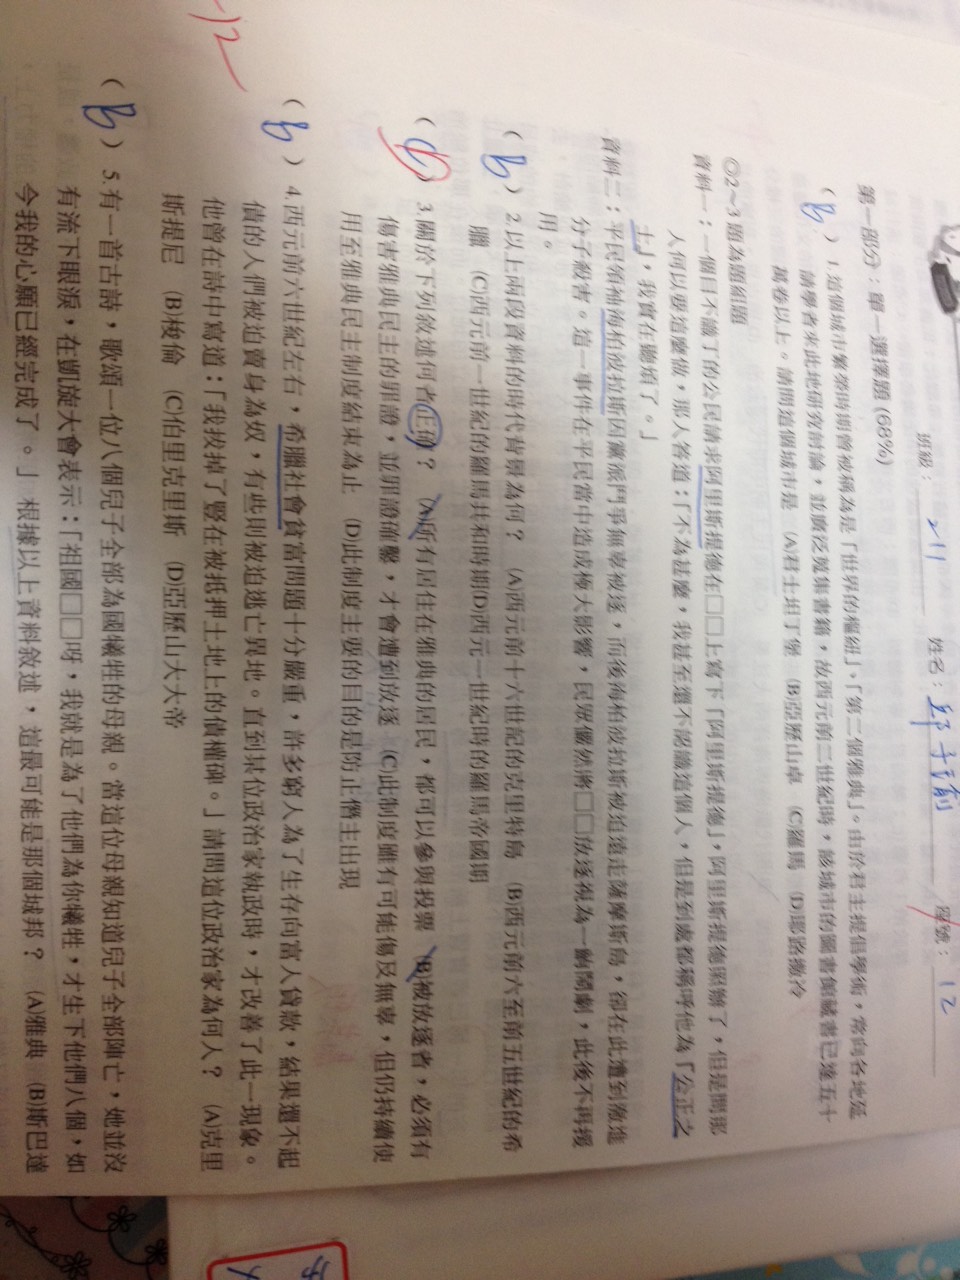 班級： 211 姓名： 座號： 12
第一部分：單一選擇題 (68%)
( B ) 1.這個城市繁榮時期曾被稱為是「世界的樞紐」、「第二個雅典」。由於君主提倡學術，常向各地延
請學者來此地研究討論，並廣泛蒐集書籍，故西元前二世紀時，該城市的圖書館藏書已達五十
萬卷以上。請問這個城市是 (A)君士坦丁堡 (B)亞歷山卓 (C)羅馬 (D)耶路撒冷
◎2~3題為題組題
資料一：一個目不識丁的公民請求阿里斯提德在□□上寫下「阿里斯提德」，阿里斯提德照辦了，但是問那
人何以要這麼做，那人答道：「不為甚麼，我甚至還不認識這個人，但是到處都稱呼他為「公正之
士」，我實在聽煩了。」
資料二：平民領袖海柏波拉斯因黨派鬥爭無辜被逐，而後海柏波拉斯被迫遠走薩摩斯島，卻在此遭到激進
分子殺害。這一事件在平民當中造成極大影響，民眾儼然將□□放逐視為一齣鬧劇，此後不再援
用。
( B ) 2.以上兩段資料的時代背景為何？ (A)西元前十六世紀的克里特島 (B)西元前六至前五世紀的希
臘 (C)西元前一世紀的羅馬共和時期(D)西元一世紀時的羅馬帝國期
( ) 3.關於下列敘述何者正確？ (A)所有居住在雅典的居民，都可以參與投票 (B)被放逐者，必須有
傷害雅典民主的罪證，並罪證確鑿，才會遭到放逐 (C)此制度雖有可能傷及無辜，但仍持續使
用至雅典民主制度結束為止 (D)此制度主要的目的是防止僭主出現
-12
( B ) 4.西元前六世紀左右，希臘社會貧富問題十分嚴重，許多窮人為了生存向富人貸款，結果還不起
債的人們被迫賣身為奴，有些則被迫逃亡異地。直到某位政治家執政時，才改善了此一現象。
他曾在詩中寫道：「我拔掉了豎在被抵押土地上的債權碑。」請問這位政治家為何人？ (A)克里
斯提尼 (B)梭倫 (C)伯里克里斯 (D)亞歷山大大帝
( B ) 5.有一首古詩，歌頌一位八個兒子全部為國犧牲的母親。當這位母親知道兒子全部陣亡，她並沒
有流下眼淚，在凱旋大會表示：「祖國□□呀，我就是為了他們為你犧牲，才生下他們八個，如
今我的心願已經完成了。」根據以上資料敘述，這最可能是那個城邦？ (A)雅典 (B)斯巴達